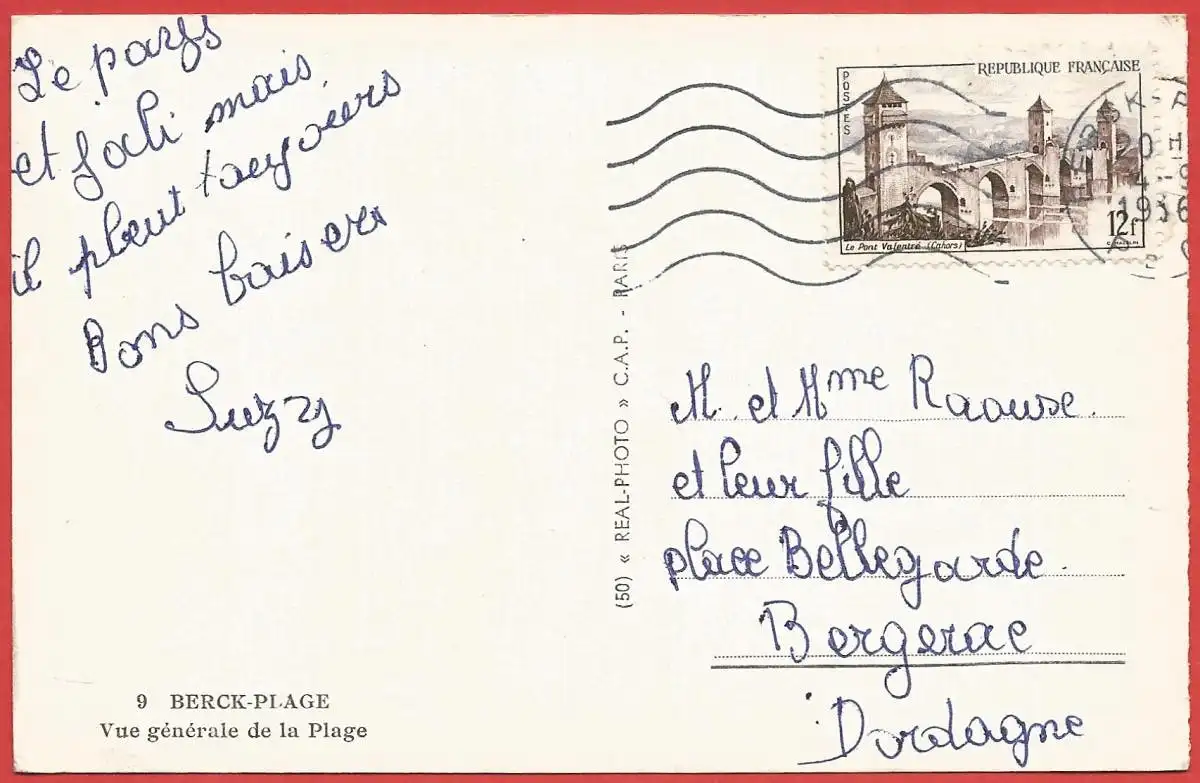 Le pays
et joli mais
il pleut toujours
Bons baisers
Suzzy
9 BERCK-PLAGE
Vue générale de la Plage
(50) « REAL-PHOTO » C.A.P. - PARIS
REPUBLIQUE FRANÇAISE
POSTES
12f
Le Pont Valentré (Cahors)
BERCK-P
20 H
4-9
1956
M. et Mme Raouse.
et leur fille
place Bellegarde.
Bergerac
Dordagne